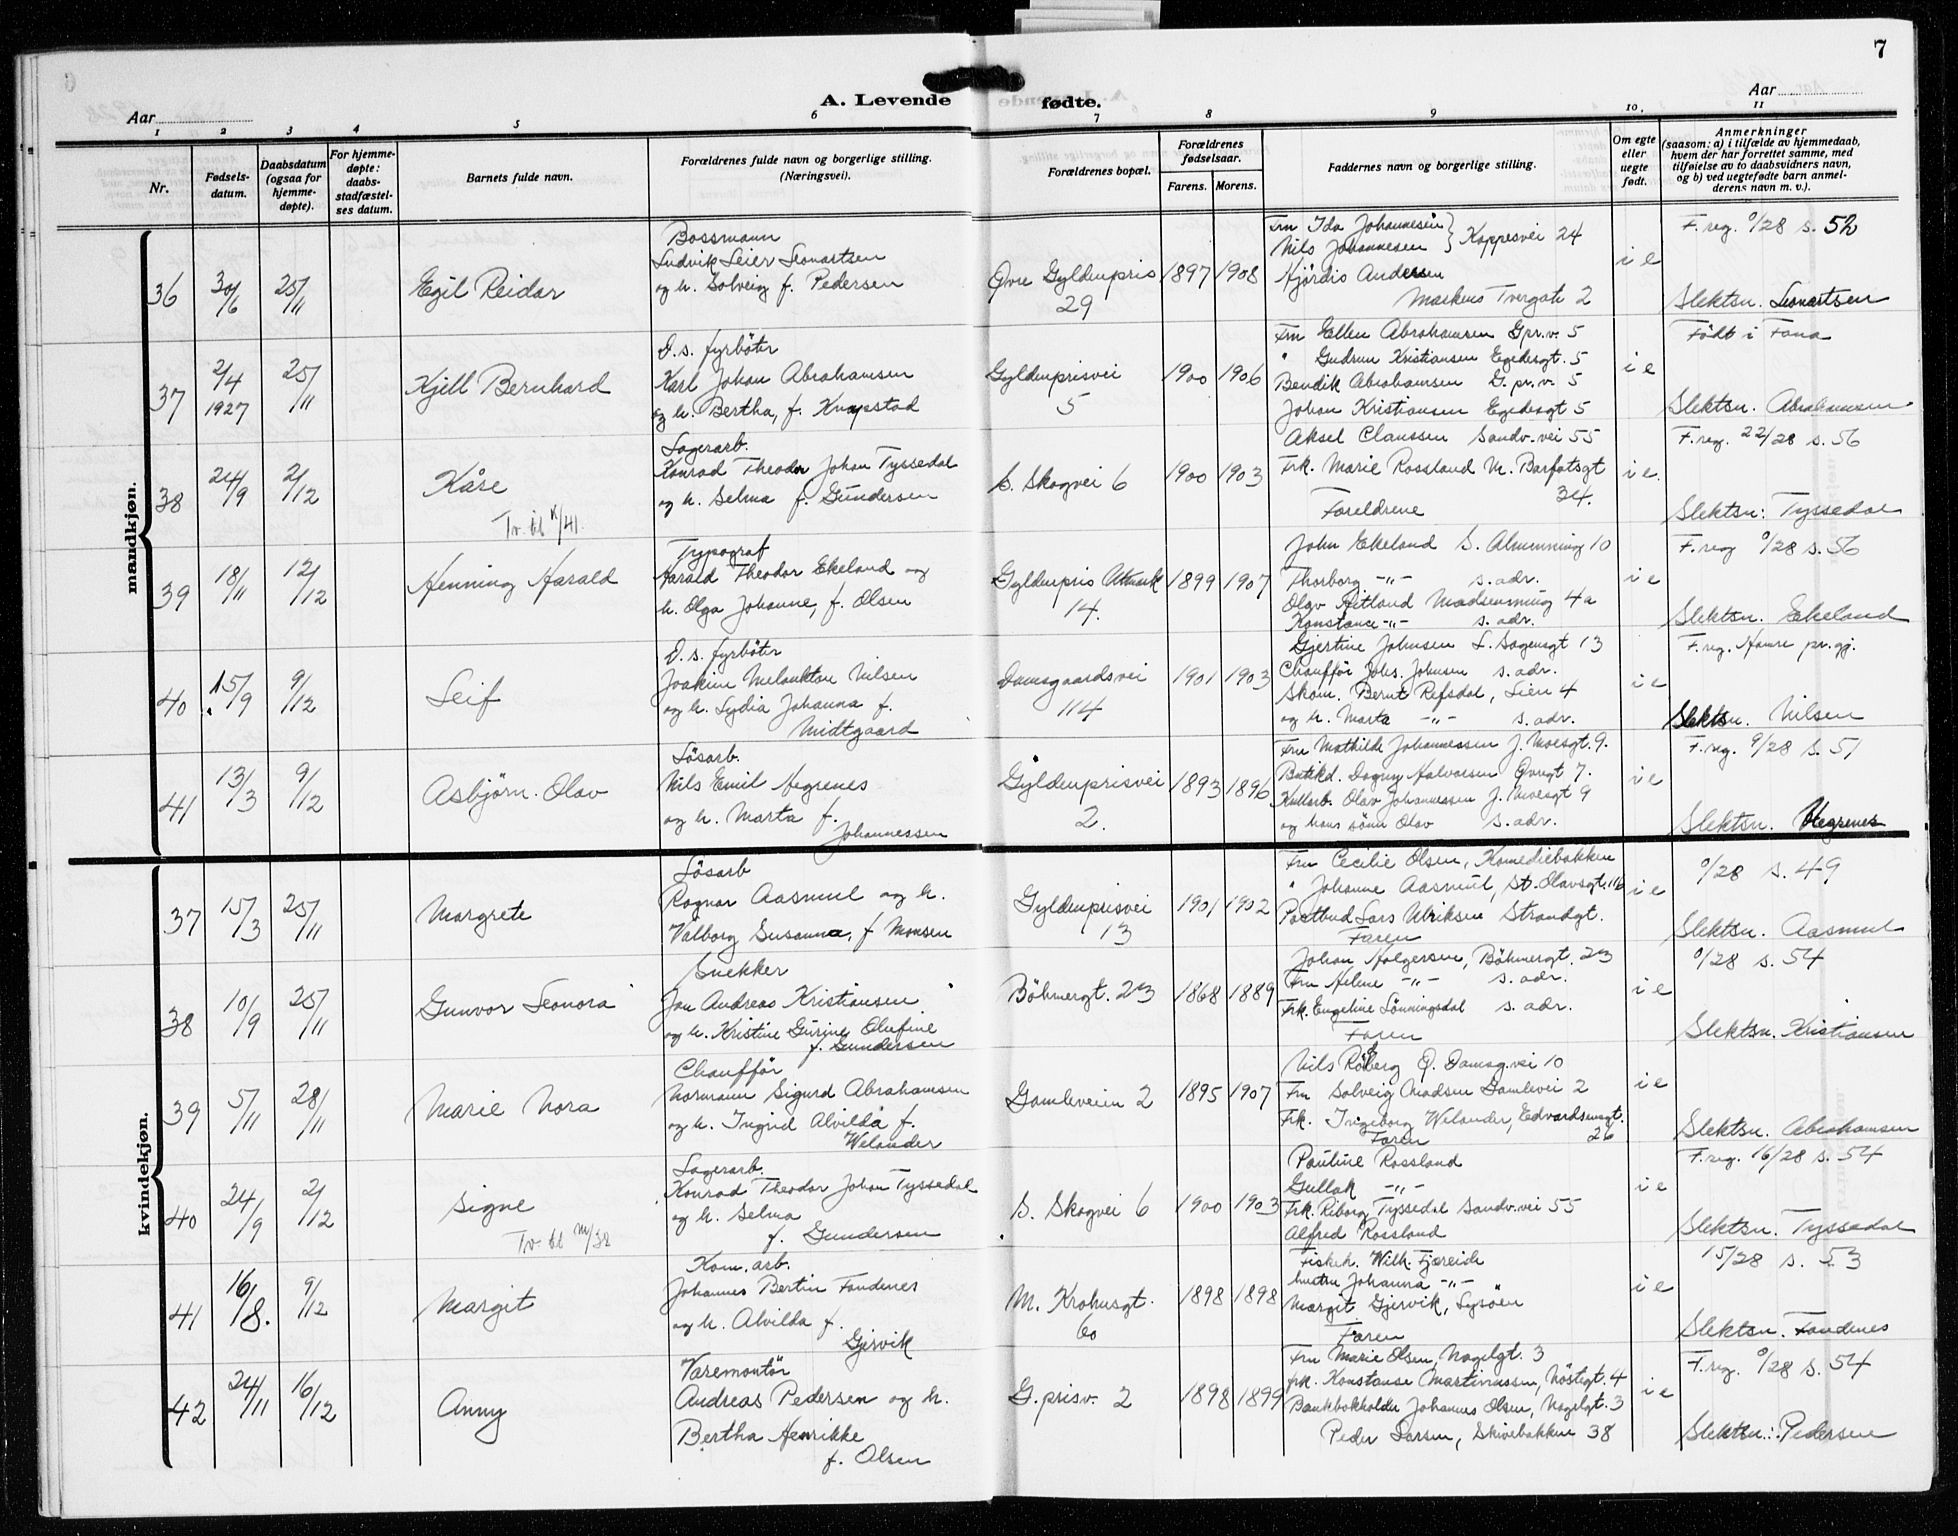 7
A. Levende fødte.
Aar
Aar
1 2 3 4 5 6 7 8 9 10. 11
Nr.
Fødsels-
datum.
Daabsdatum
(ogsaa for
hjemme-
døpte).
For hjemme-
døpte:
daabs-
stadfæstel-
ses datum.
Barnets fulde navn.
Forældrenes fulde navn og borgerlige stilling.
(Næringsvei).
Forældrenes bopæl.
Forældrenes
fødselsaar.
Farens. Morens.
Faddernes navn og borgerlige stilling.
Om egte
eller
uegte
født.
Anmerkninger
(saasom: a) i tilfælde av hjemmedaab,
hvem der har forrettet samme, med
tilføielse av to daabsvidners navn,
og b) ved uegtefødte barn anmel-
derens navn m. v.).
mandkjøn.
36
30/6
25/11
Egil Reidar
Bossmann
Ludvik Leier Leonartsen
og h. Solveig f. Pedersen
Øvre Gyldenpris
29
1897 1908
Fru Ida Johannesen
Nils Johannesen } Kappesvei 24
Hjördis Andersen
Markens Tvergate 2
i e
F. reg. 9/28 s. 52
Slektsn. Leonartsen
37
2/4
1927
25/11
Kjell Bernhard
D.s. fyrböter
Karl Johan Abrahamsen
og h. Bertha, f. Knapstad
Gyldenprisvei
5
1900 1906
Fru Ellen Abrahamsen G.pr.v. 5
" Gudrun Kristiansen Egedesgt. 5
Bendik Abrahamsen G.pr.v. 5
Johan Kristiansen Egedesgt 5
i e
Född i Fana
Slektsn. Abrahamsen
38
24/9
2/12
Kåre
Tv. til K/41.
Lagerarb.
Konrad Theodor Johan Tyssedal
og h. Selma f. Gundersen
S. Skogvei 6
1900 1903
Aksel Claussen Sandv.vei 55
Frk. Marie Rossland M. Barfotsgt
34.
Foreldrene
i e.
F. reg. 22/28 s. 56
Slektsn: Tyssedal
39
18/11
12/12
Henning Harald
Typograf
Harald Theodor Ekeland og
h. Olga Johanne, f. Olsen
Gyldenpris Utmark
14.
1899 1907
John Ekeland S. Almenning 10
Thorborg -"- s. adr.
Olav Hitland Madsensmug 4a
Konstance -"- s. adr.
i e
F. reg 9/28 s. 56
Slektsn. Ekeland
40
15/9
9/12
Leif
D.s. fyrböter
Joakim Melankton Nilsen
og h. Lydia Johanna f.
Midtgaard
Damsgaardsvei
114
1901 1903
Gjertine Johnsen L. Sagensgt 13
Chaufför Johs. Johnsen s. adr.
Skom. Bernt Refsdal, Lien 4
og h. Marta -"- s. adr.
i e
F. reg. Hamre pr.gj.
Slektsn. Nilsen
41
13/3
9/12
Asbjørn Olav
Lösarb.
Nils Emil Hegrenes
og h. Marta f.
Johannessen
Gyldenprisvei
2.
1893 1896
Fru Mathilde Johannessen J. Moesgt. 9.
Butikd. Dagny Halvorsen Øvregt 7.
Kullarb. Olav Johannessen J. Moesgt 9
og hans sönn Olav s. adr.
i e
F. reg. 9/28 s. 51
Slektsn. Hegrenes
kvindekjøn.
37
15/3
25/11
Margrete
Lösarb
Ragnar Aasmul og h.
Valborg Susanna, f Monsen
Gyldenprisvei
13
1901 1902
Fru Cecilie Olsen, Komediebakken
" Johanne Aasmul, St. Olavsgt. 11b
Postbud Lars Ulriksen Strandgt.
Faren
i e
9/28 s. 49
Slektsn. Aasmul
38
10/9
25/11
Gunvor Leonora
Snekker
Jon Andreas Kristiansen
og h. Kristine Gurine Olufine
f. Gundersen
Böhmergt. 23
1868 1889
Johan Holgersen, Böhmergt. 23
Fru Helene -"- s. adr.
Frk. Engeline Lönningsdal s. adr.
Faren
i e
9/28 s. 54
Slektsn. Kristiansen
39
5/11
28/11
Marie Nora
Chaufför
Normann Sigurd Abrahamsen
og h. Ingrid Alvilda f.
Welander
Gamleveien 2
1895 1907
Nils Röberg Ø. Damsg.vei 10
Fru Solveig Madsen Gamlevei 2
Frk. Ingeborg Welander, Edvardsensgt.
26
Faren
i e
Slektsn. Abrahamsen
40
24/9
2/12
Signe
Tv. til M/38
Lagerarb.
Konrad Theodor Johan Tyssedal
og h. Selma
f. Gundersen
S. Skogvei 6
1900 1903
Pauline Rossland
Gullak -"-
Frk. Riborg Tyssedal Sandv.vei 55
Alfred Rossland
i e
F. reg. 16/28 s. 54
Slektsn. Tyssedal
41
16/8.
9/12
Margit
Kom. arb.
Johannes Bertin Fondenes
og h. Alvilda f.
Gjervik
M. Krohnsgt.
60
1898 1898
Fiskeh. Wilh. Fjæreide
hustru Johanna -"-
Margit Gjervik, Lysöen
Faren
i e
15/28 s. 53
Slektsn. Fondenes
42
24/11
16/12
Anny
Varemontør
Andreas Pedersen og h.
Bertha Henrikke
f. Olsen
G.prisv. 2
1898 1899
Fru Marie Olsen, Nagelgt. 3
Frk. Konstanse Martinussen, Nöstegt. 4
Bankbokholder Johannes Olsen, Nagelgt. 3
Peder Larsen, Skivebakken 38
i e
F. reg. 9/28 s. 54
Slektsn: Pedersen